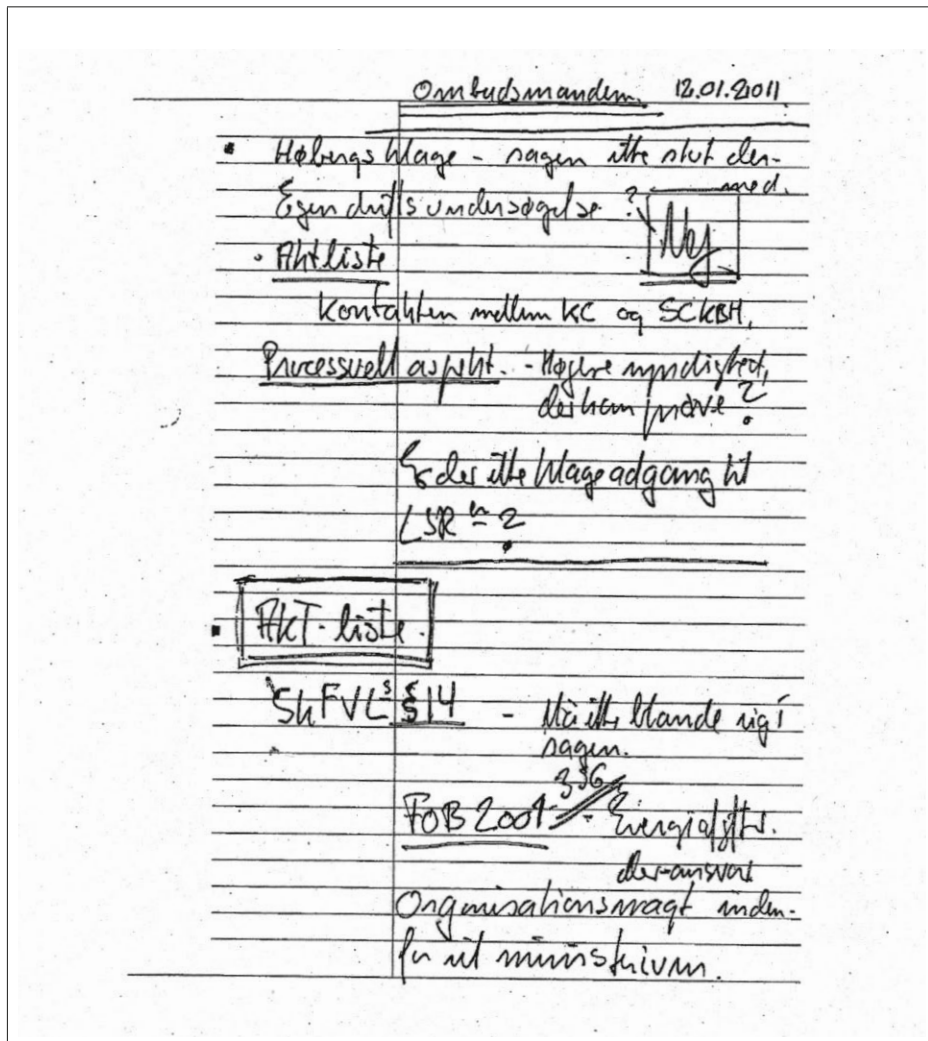 Ombudsmanden. 12.01.2011.
Høbergs klage - sagen ikke slut der-
med.
Egendriftsundersøgelse ?
Nej
Aktliste
Kontakten mellem KC og SCKBH,
Processuelt aspekt. - Højere myndighed,
der kan prøve ?
Er der ikke klageadgang til
LSR en ?
AKT-liste.
SkFVL § 14 - Må ikke blande sig i
sagen.
356
FOB 2001 - Energiafgifts.
Organisationsmagt inden-
for et ministerium.